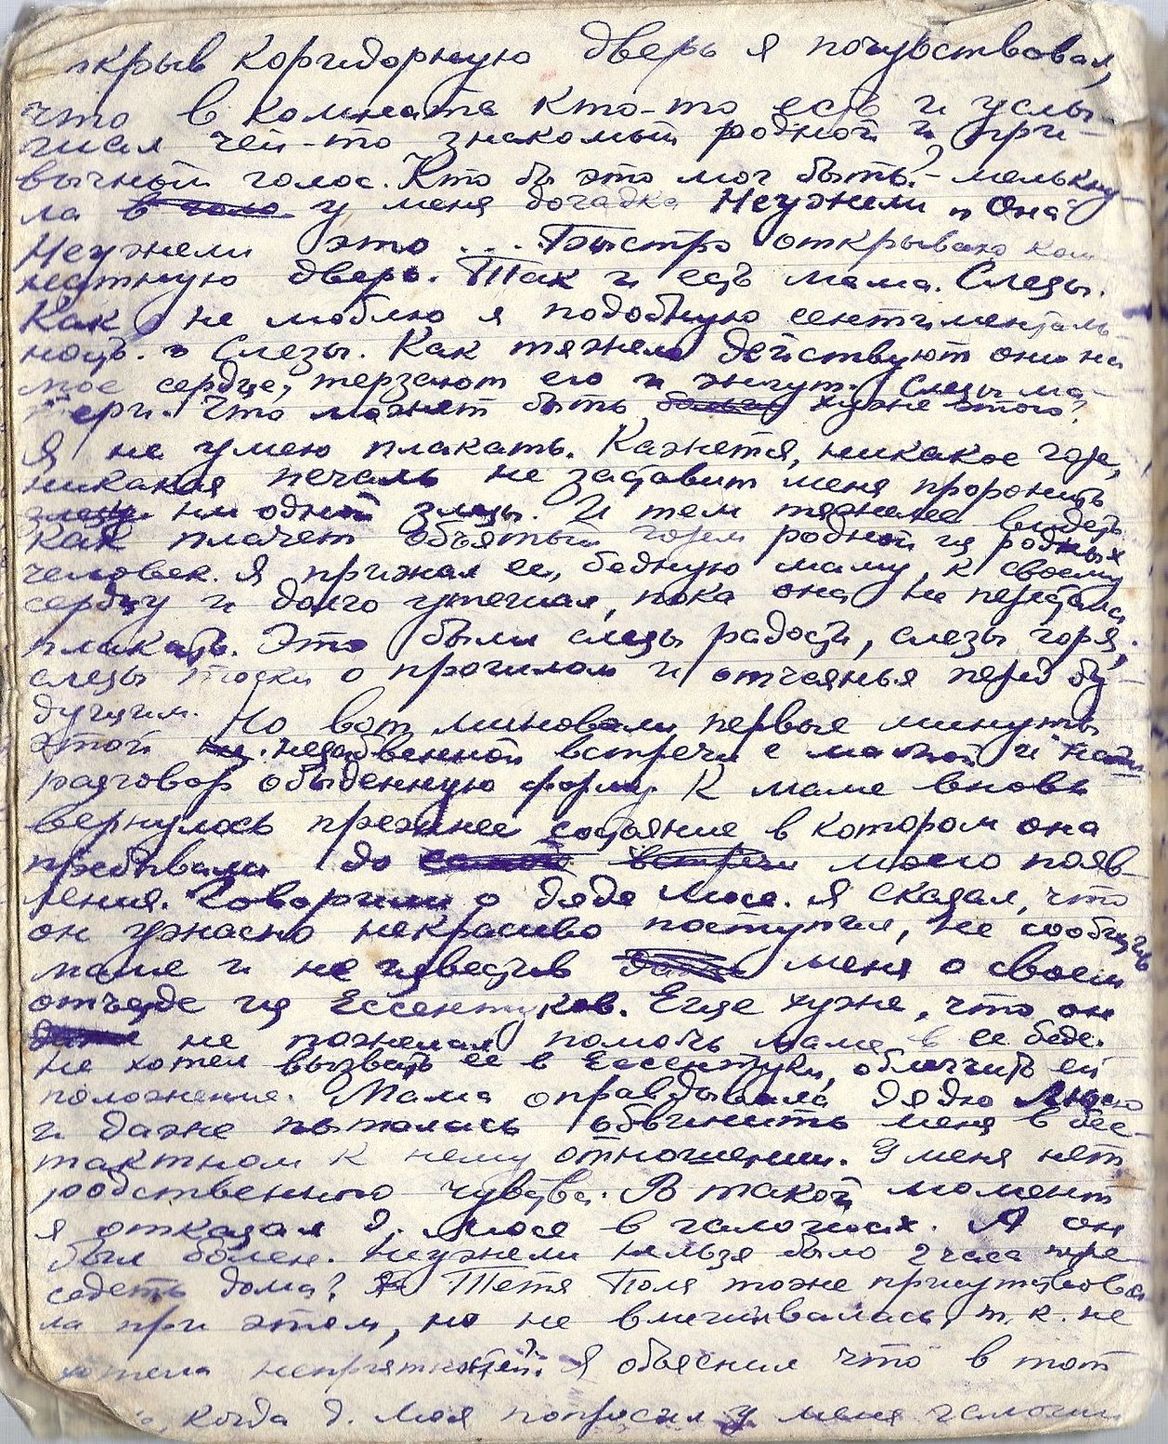 открыв коридорную дверь я почувствовал,
что в комнате кто-то есть и услы-
шал чей-то знакомый родной и при-
вычный голос. Кто бы это мог быть? - мелькну-
ла у меня догадка Неужели "Она"
Неужели это ... Быстро открываю ком
натную дверь. Так и есть мама. Слезы.
Как не люблю я подобную сентименталь-
ность. Слезы. Как тяжело действуют они на
мое сердце, терзают его и жгут. Слезы ма-
тери. Что может быть хуже этого?
Я не умею плакать. Кажется, никакое горе,
никакая печаль не заставит меня проронить
ни одной слезы. И тем тяжелее видеть
как плачет объятый горем родной из родных
человек. Я прижал ее, бедную маму, к своему
сердцу и долго утешал, пока она не перестала
плакать. Это были слезы радости, слезы горя,
слезы тоски о прошлом и отчаянья перед бу-
дущим. Но вот миновали первые минуты
этой встречи с мамой и
разговор обыденную форму. К маме вновь
вернулось прежнее состояние в котором она
пребывала до моего появ-
ления. Говорили о дяде Люсе. Я сказал, что
он ужасно некрасиво поступил, не сообщив
маме и не известив меня о своем
отъезде из Ессентуков. Еще хуже, что он
не пожелал помочь маме в ее беде.
Не хотел вызвать ее в Ессентуки, облегчить ей
положение. Мама оправдывала дядю Люсю
и даже пыталась обвинить меня в бес-
тактном к нему отношении. У меня нет
родственного чувства. В такой момент
я отказал д. Люсе в галошах. А он
был болен. Неужели нельзя было 2 часа пере-
седеть дома? Тетя Поля тоже присутствова
ла при этом, но не вмешивалась, т.к. не
хотела неприятностей. Я объяснил что в тот
когда д. Люся попросил у меня галоши